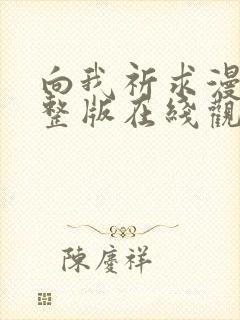 向我祈求漫
整版在綫觀
陳慶祥